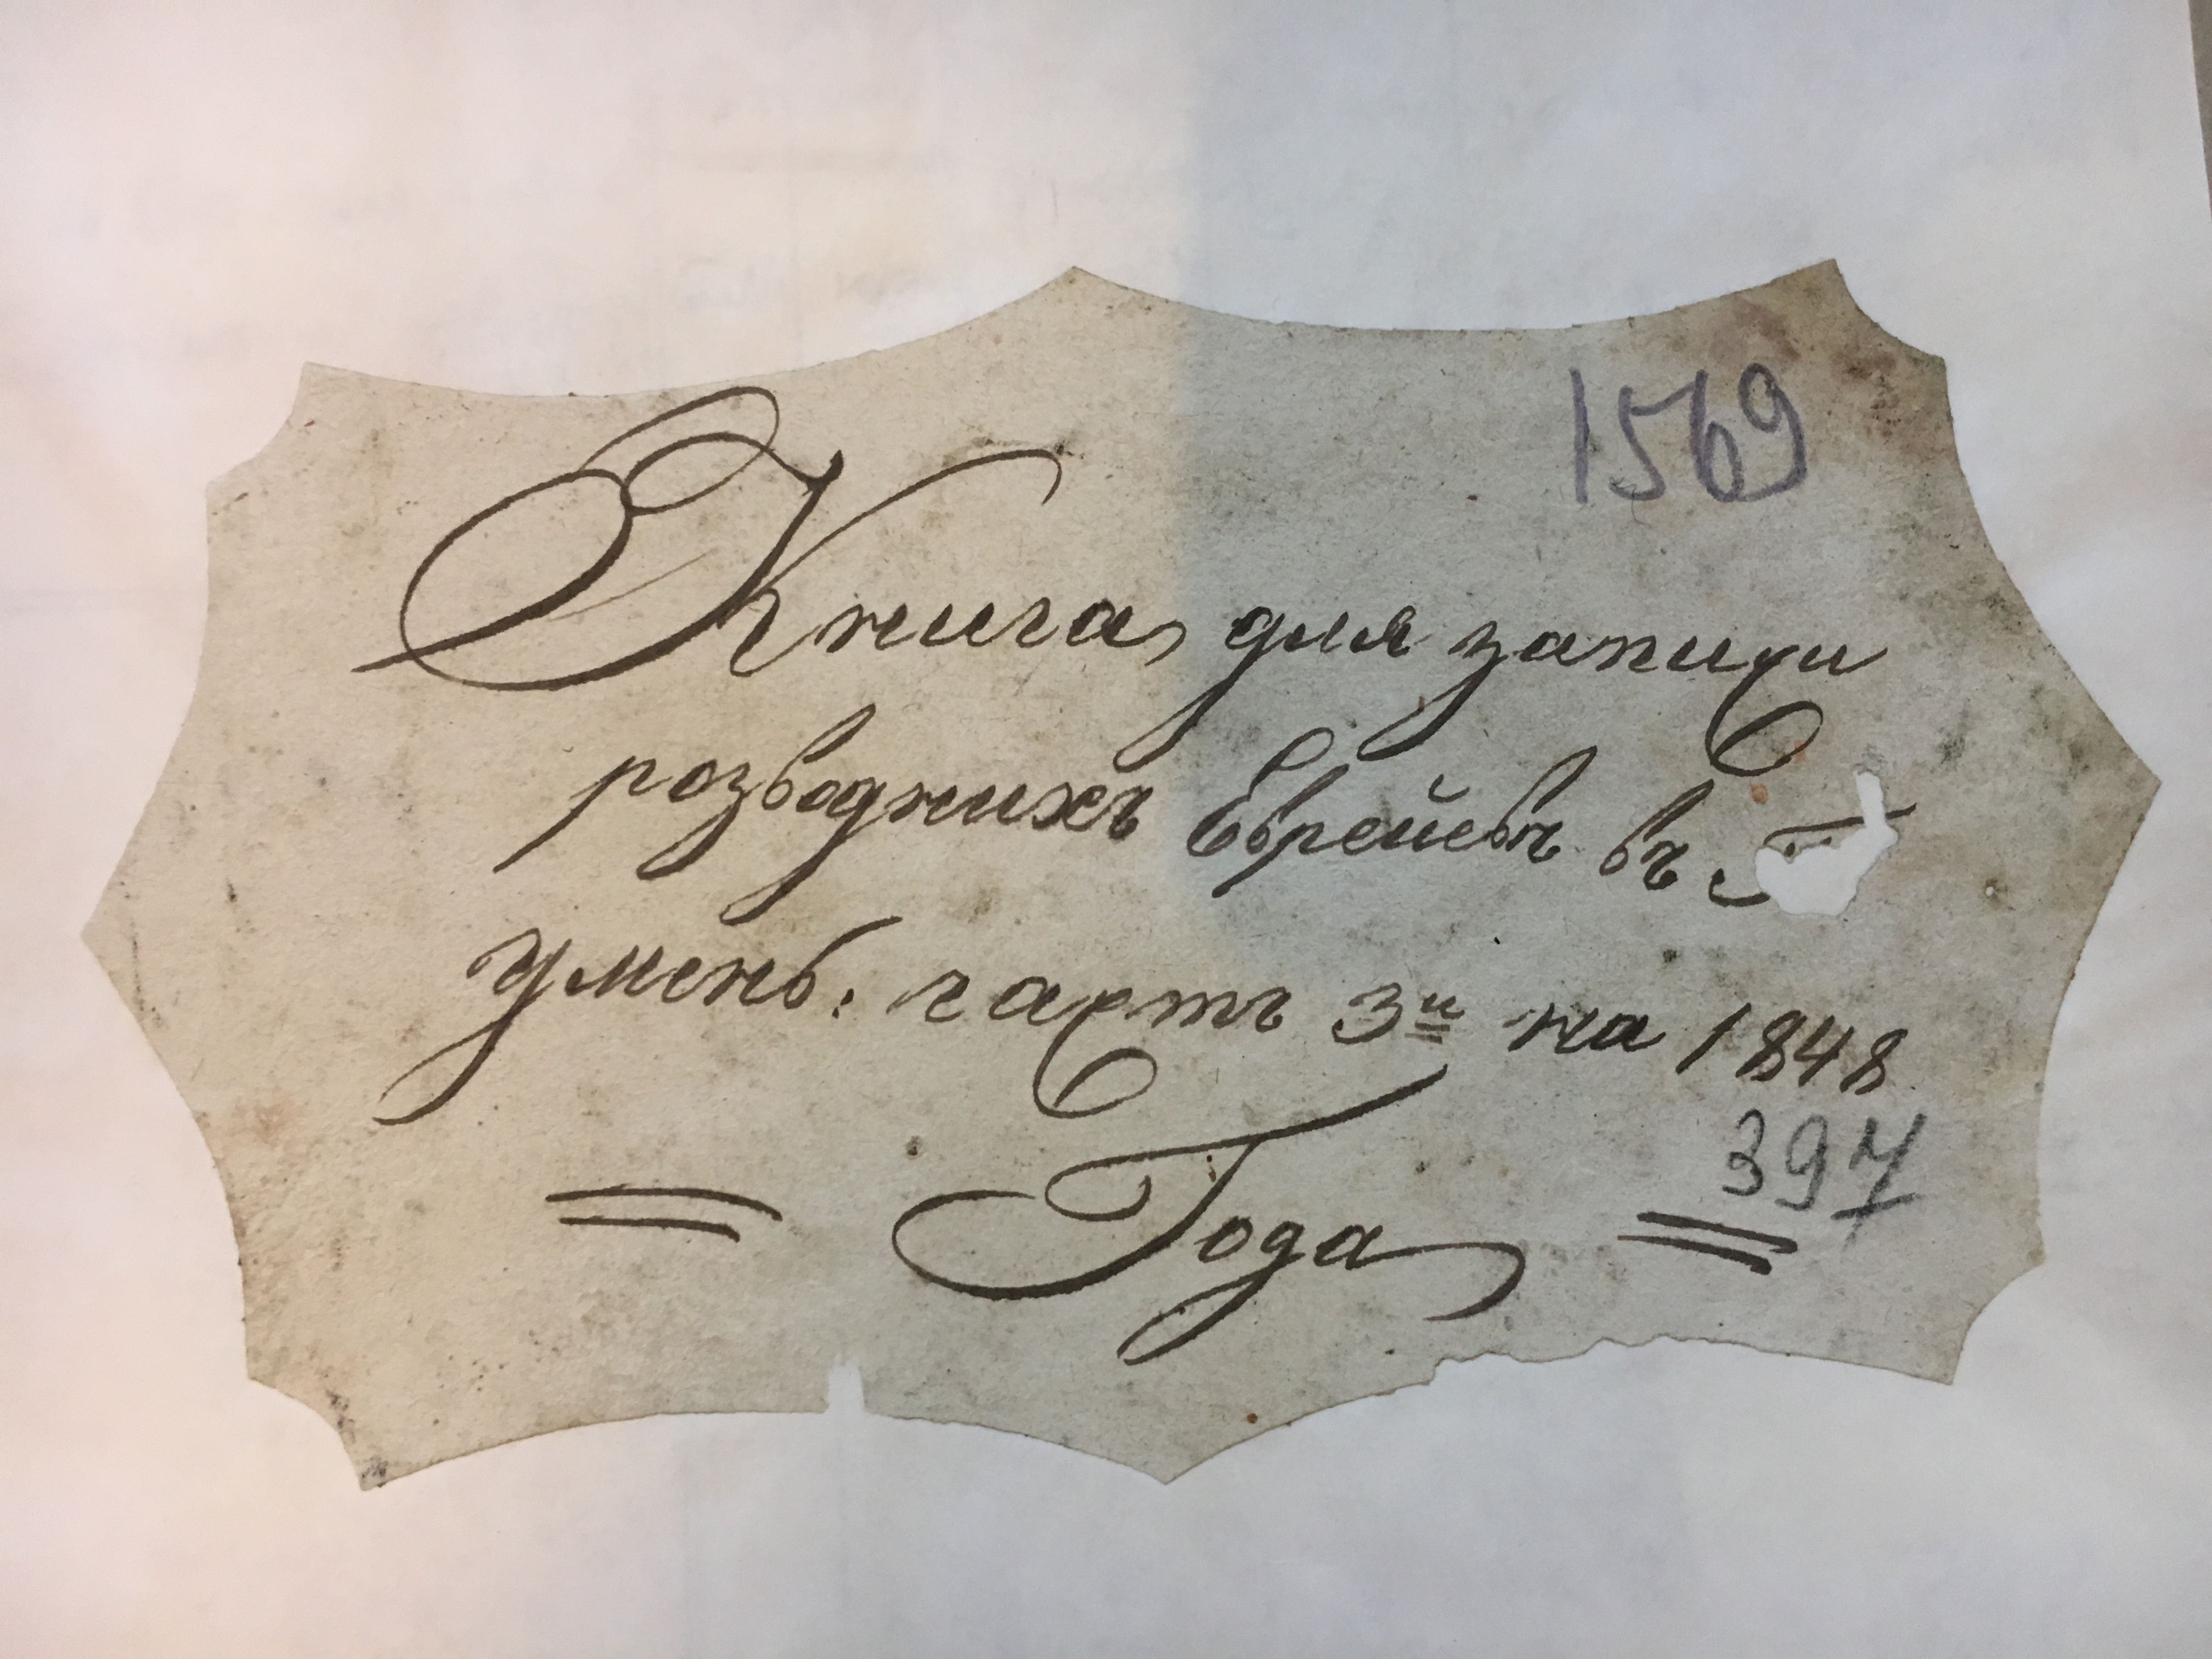 1569
Книга для записи
розводнихъ Еврейевъ въ Г
Умень: частъ 3й на 1848
397
Года